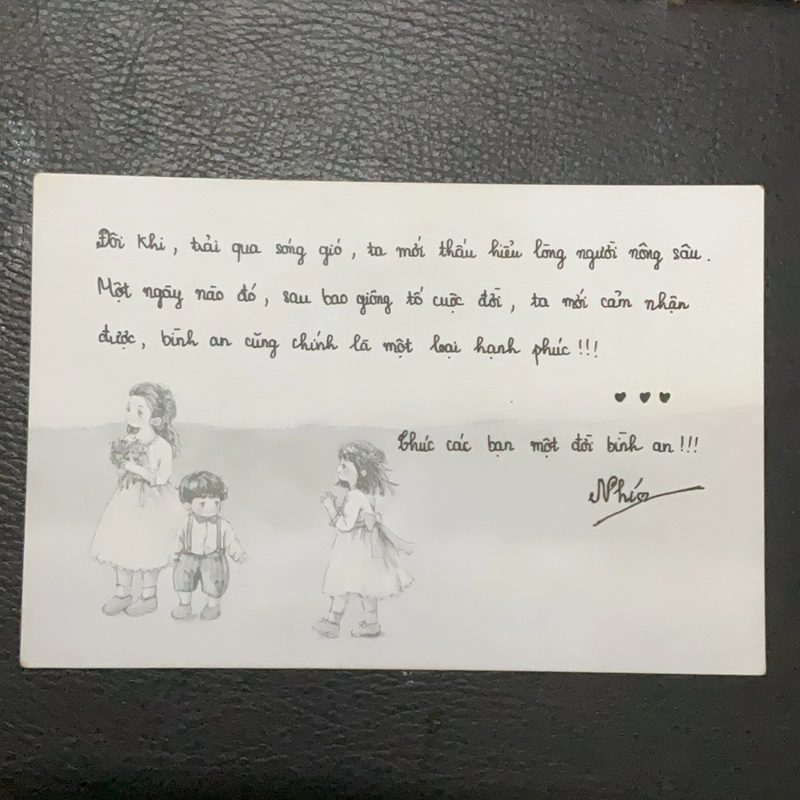 Đôi khi, trải qua sóng gió, ta mới thấu hiểu lòng người nông sâu.
Một ngày nào đó, sau bao giông tố cuộc đời, ta mới cảm nhận
được, bình an cũng chính là một loại hạnh phúc!!!
♥ ♥ ♥
Chúc các bạn một đời bình an!!!
Nhím